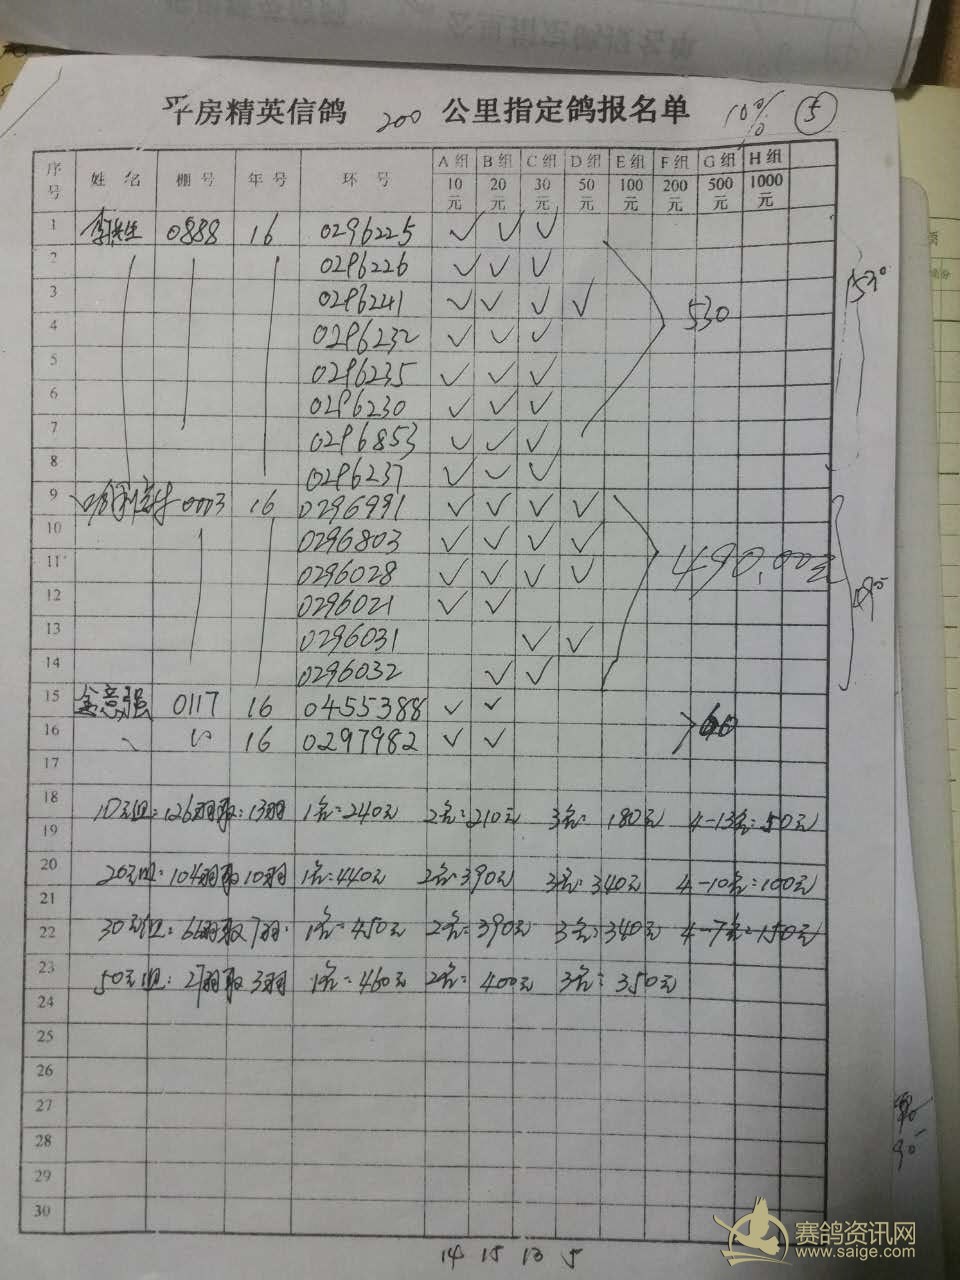 平房精英信鸽 200 公里指定鸽报名单 10% ⑤
序号 姓名 棚号 年号 环号 A组10元 B组20元 C组30元 D组50元 E组100元 F组200元 G组500元 H组1000元
1 0888 16 0296225 ✓ ✓ ✓
2 0296226 ✓ ✓ ✓
3 0296241 ✓ ✓ ✓ ✓ 530
4 0296232 ✓ ✓ ✓
5 0296235 ✓ ✓ ✓
6 0296230 ✓ ✓ ✓
7 0296853 ✓ ✓ ✓
8 0296237 ✓ ✓ ✓
9 0003 16 0296991 ✓ ✓ ✓ ✓
10 0296803 ✓ ✓ ✓ ✓
11 0296028 ✓ ✓ ✓ ✓ 490.00元
12 0296021 ✓ ✓
13 0296031 ✓ ✓
14 0296032 ✓ ✓
15 金意强 0117 16 0455388 ✓ ✓
16 16 0297982 ✓ ✓ 60
17
18 10元组:126羽取:13羽 1名=240元 2名=210元 3名=180元 4-13名=50元
19
20 20元组:104羽取10羽 1名=440元 2名=390元 3名=340元 4-10名=100元
21
22 30元组:66羽取7羽 1名=450元 2名=390元 3名=340元 4-7名=150元
23 50元组:27羽取3羽 1名=460元 2名=400元 3名=350元
24
25
26
27
28
29
30
14 15 13 5
赛鸽资讯网
www.saige.com